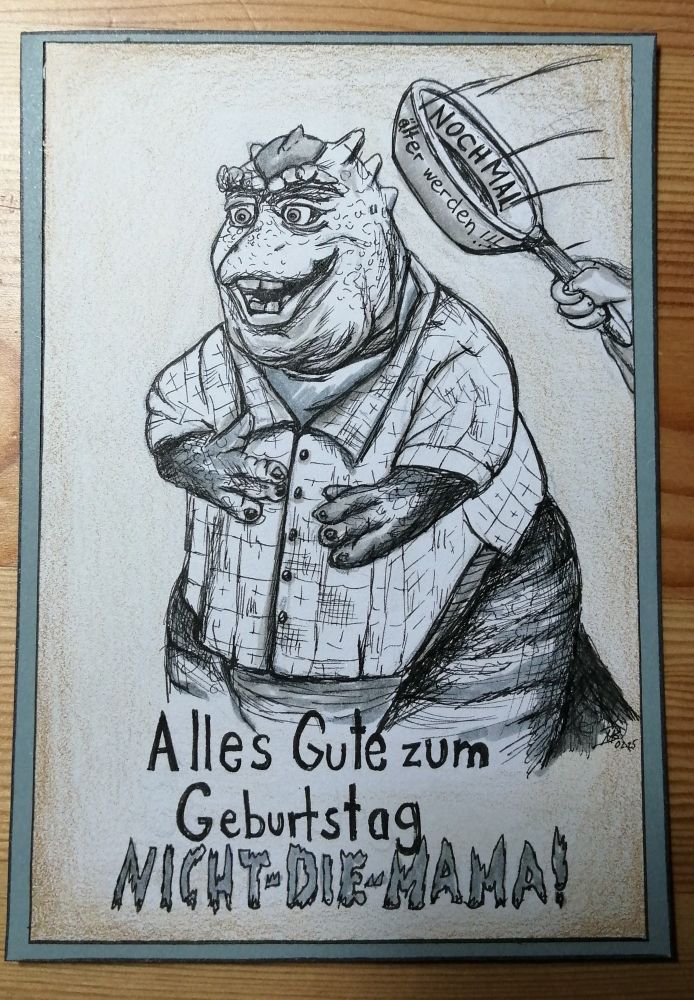 NOCHMAL
älter werden!!!
Alles Gute zum
Geburtstag
NICHT-DIE-MAMA!
0225